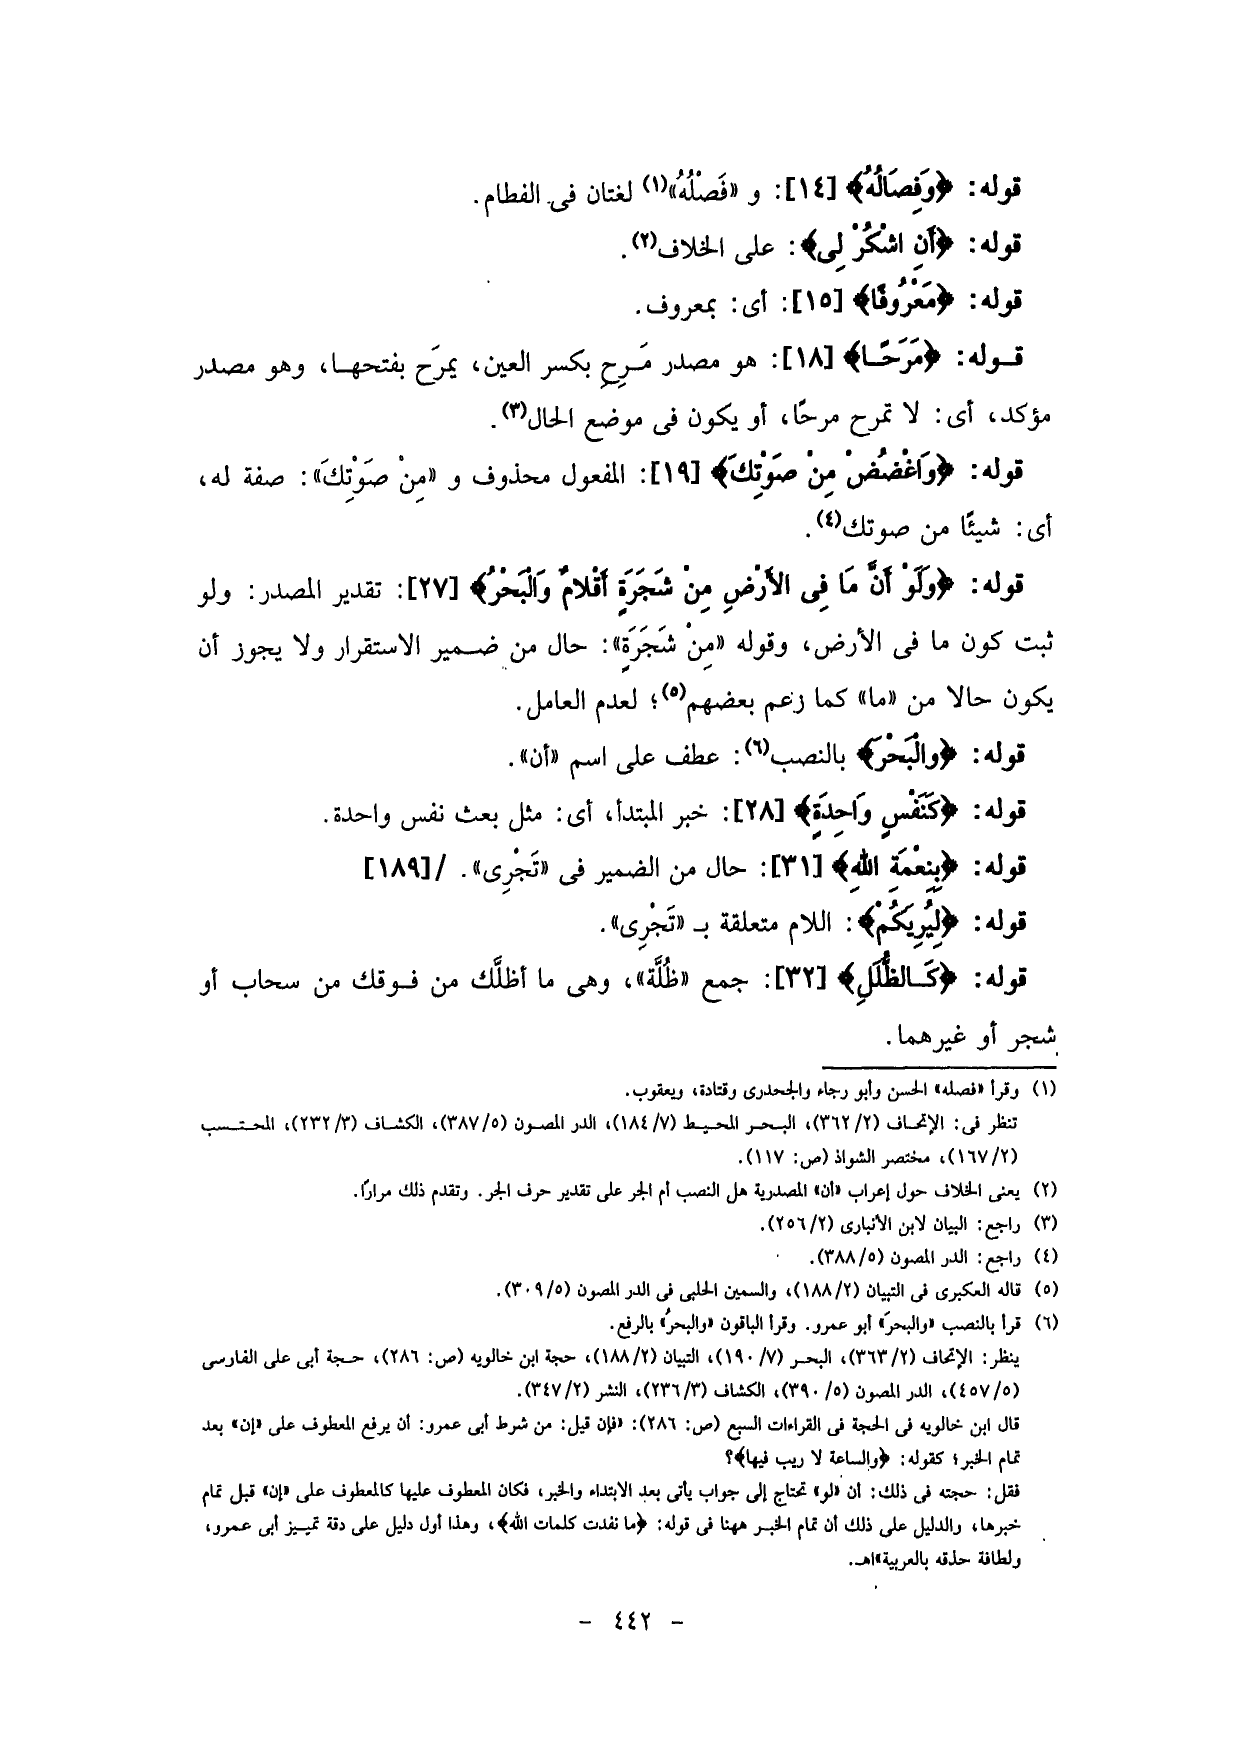 قوله: ﴿وَفِصَالُهُ﴾ [١٤]: و «فَصْلُهُ»(١) لغتان فى الفطام.
قوله: ﴿أَنِ اشْكُرْ لِى﴾: على الخلاف(٢).
قوله: ﴿مَعْرُوفًا﴾ [١٥]: أى: بمعروف.
قـوله: ﴿مَرَحًـا﴾ [١٨]: هو مصدر مَـرِح بكسر العين، يمرَح بفتحهـا، وهو مصدر
مؤكد، أى: لا تمرح مرحًا، أو يكون فى موضع الحال(٣).
قوله: ﴿وَاغْضُضْ مِنْ صَوْتِكَ﴾ [١٩]: المفعول محذوف و «مِنْ صَوْتِكَ»: صفة له،
أى: شيئًا من صوتك(٤).
قوله: ﴿وَلَوْ أَنَّ مَا فِى الأَرْضِ مِنْ شَجَرَةٍ أَقْلامٌ وَالْبَحْرُ﴾ [٢٧]: تقدير المصدر: ولو
ثبت كون ما فى الأرض، وقوله «مِنْ شَجَرَةٍ»: حال من ضـمير الاستقرار ولا يجوز أن
يكون حالا من «ما» كما زعم بعضهم(٥)؛ لعدم العامل.
قوله: ﴿والْبَحْرَ﴾ بالنصب(٦): عطف على اسم «أن».
قوله: ﴿كَنَفْسٍ وَاحِدَةٍ﴾ [٢٨]: خبر المبتدأ، أى: مثل بعث نفس واحدة.
قوله: ﴿بِنِعْمَةِ اللهِ﴾ [٣١]: حال من الضمير فى «تَجْرِى». /[١٨٩]
قوله: ﴿لِيُرِيَكُمْ﴾: اللام متعلقة بـ «تَجْرِى».
قوله: ﴿كَـالظُّلَلِ﴾ [٣٢]: جمع «ظُلَّة»، وهى ما أظلَّك من فـوقك من سحاب أو
شجر أو غيرهما.
(١) وقرأ «فصله» الحسن وأبو رجاء والجحدرى وقتادة، ويعقوب.
تنظر فى: الإتحاف (٣٦٢/٢)، البـحـر المحيـط (١٨٤/٧)، الدر المصـون (٣٨٧/٥)، الكشـاف (٢٣٢/٣)، المحتـسب
(١٦٧/٢)، مختصر الشواذ (ص: ١١٧).
(٢) يعنى الخلاف حول إعراب «أن» المصدرية هل النصب أم الجر على تقدير حرف الجر. وتقدم ذلك مرارًا.
(٣) راجع: البيان لابن الأنبارى (٢٥٦/٢).
(٤) راجع: الدر المصون (٣٨٨/٥).
(٥) قاله العكبرى فى التبيان (١٨٨/٢)، والسمين الحلبى فى الدر المصون (٣٠٩/٥).
(٦) قرأ بالنصب «والبحرَ» أبو عمرو. وقرأ الباقون «والبحرُ» بالرفع.
ينظر: الإتحاف (٣٦٣/٢)، البحـر (١٩٠/٧)، التبيان (١٨٨/٢)، حجة ابن خالويه (ص: ٢٨٦)، حـجة أبى على الفارسى
(٤٥٧/٥)، الدر المصون (٣٩٠/٥)، الكشاف (٢٣٦/٣)، النشر (٣٤٧/٢).
قال ابن خالويه فى الحجة فى القراءات السبع (ص: ٢٨٦): «فإن قيل: من شرط أبى عمرو: أن يرفع المعطوف على «إن» بعد
تمام الخبر؛ كقوله: ﴿والساعة لا ريب فيها﴾؟
فقل: حجته فى ذلك: أن «لو» تحتاج إلى جواب يأتى بعد الابتداء والخبر، فكان المعطوف عليها كالمعطوف على «إن» قبل تمام
خبرها، والدليل على ذلك أن تمام الخبـر ههنا فى قوله: ﴿ما نفدت كلمات الله﴾، وهذا أول دليل على دقة تمييز أبى عمرو،
ولطافة حذقه بالعربية»اهـ.
- ٤٤٢ -